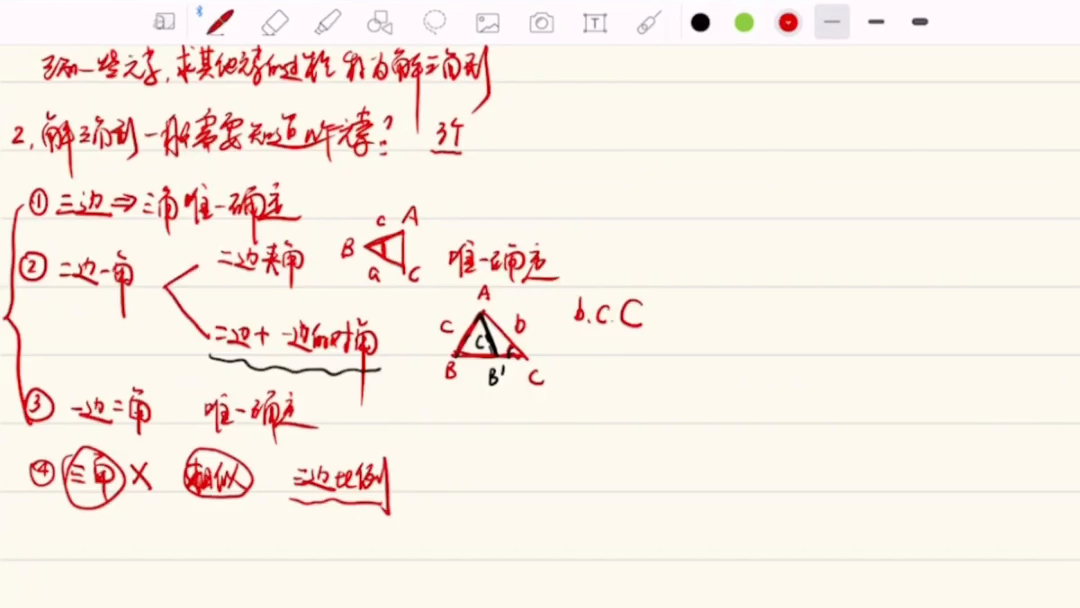 已知一些元素,求其他元素的过程 称为解三角形
2.解三角形一般需要知道几个元素? 3个
① 三边⇒三角唯一确定
② 二边一角 二边夹角 B c A a C 唯一确定
二边+一边的对角 A c b C B B' C b.c.C
③ 一边二角 唯一确定
④ 三角 × 相似 三边比例
T